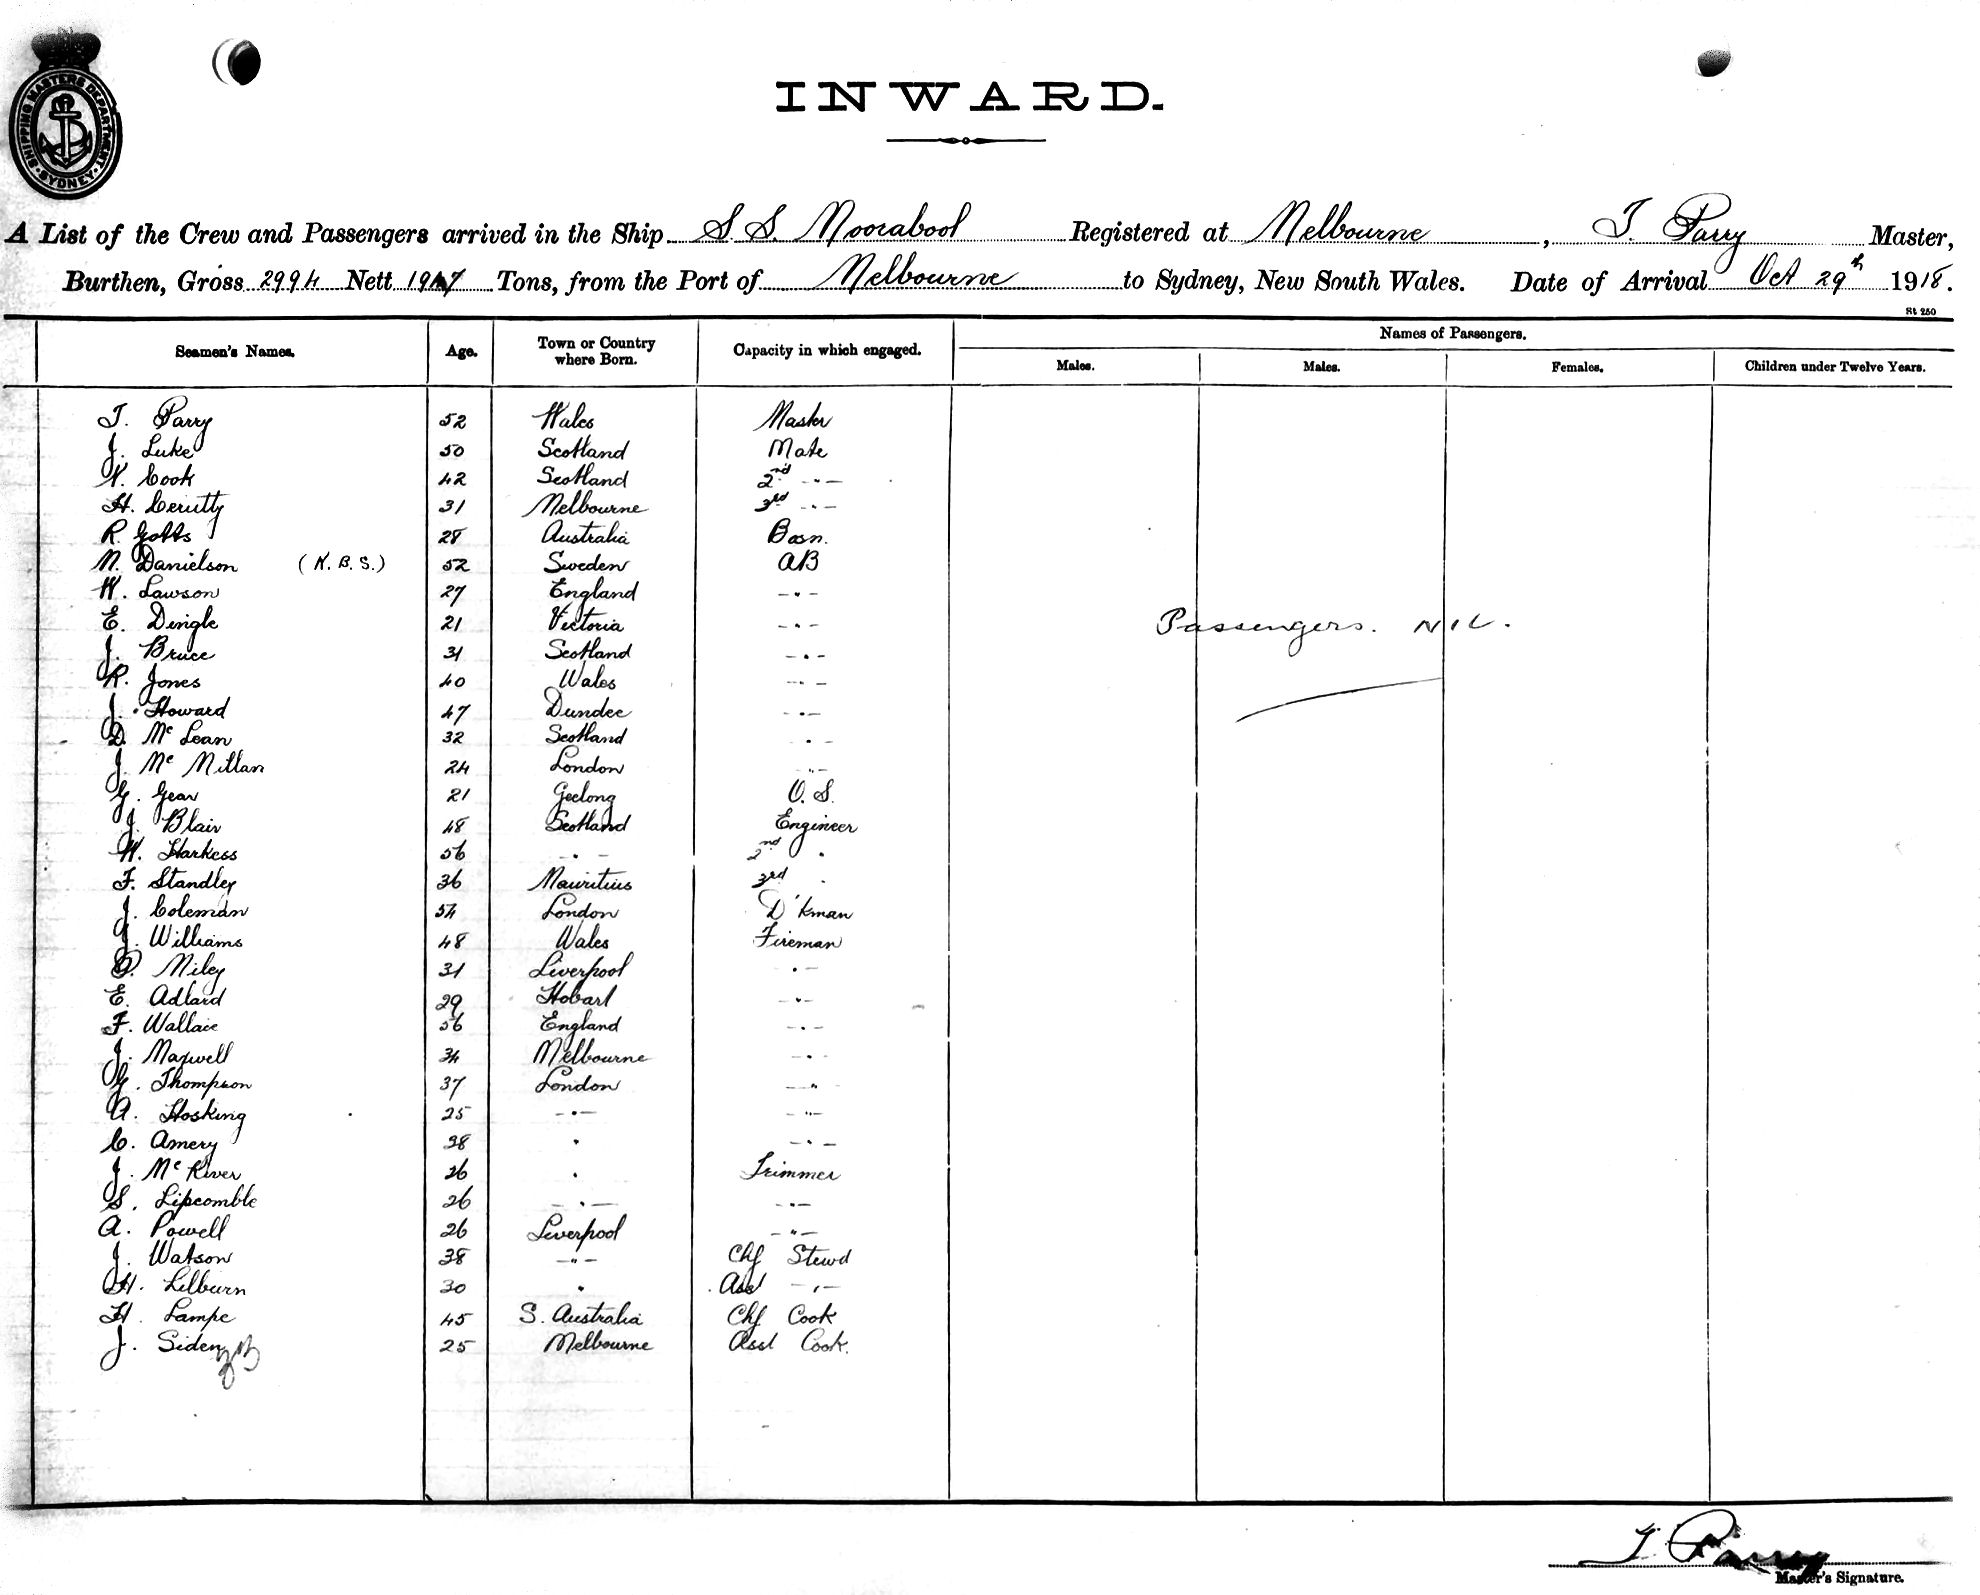 SHIPPING MASTERS DEPARTMENT
SYDNEY
INWARD.
A List of the Crew and Passengers arrived in the Ship S. S. Moorabool Registered at Melbourne, T. Parry Master,
Burthen, Gross 2994 Nett 1947 Tons, from the Port of Melbourne to Sydney, New South Wales. Date of Arrival Oct 29th 1918.
St 250
Seamen's Names. Age. Town or Country where Born. Capacity in which engaged. Names of Passengers.
Males. Males. Females. Children under Twelve Years.
T. Parry 52 Wales Master
J. Luke 50 Scotland Mate
W. Cook 42 Scotland 2nd -"-
H. Cerutty 31 Melbourne 3rd -"-
R. Gobbs 28 Australia Bosn.
N. Danielson (N.B.S.) 52 Sweden AB
W. Lawson 27 England -"-
E. Dingle 21 Victoria -"-
Passengers. NIL.
J. Bruce 31 Scotland -"-
R. Jones 40 Wales -"-
J. Howard 47 Dundee -"-
D. Mc Lean 32 Scotland -"-
J. Mc Millan 24 London -"-
G. Gear 21 Geelong O. S.
J. Blair 48 Scotland Engineer
W. Harkess 56 -"- 2nd "
F. Standley 36 Mauritius 3rd "
J. Coleman 54 London D'kman
J. Williams 48 Wales Fireman
Miley 31 Liverpool "-
E. Adlard 29 Hobart -"-
F. Wallace 56 England -"-
J. Maxwell 34 Melbourne -"-
G. Thompson 37 London -"-
A. Hosking 25 -"- -"-
C. Amery 28 " -"-
J. Mc Kiver 26 " Trimmer
S. Lipcomble 26 -"- -"-
A. Powell 26 Liverpool -"-
J. Watson 38 -"- Chf Stewd
H. Lilburn 30 " Asst -"-
H. Lampe 45 S. Australia Chf Cook
J. Siden 25 Melbourne Asst Cook.
T. Parry
Master's Signature.